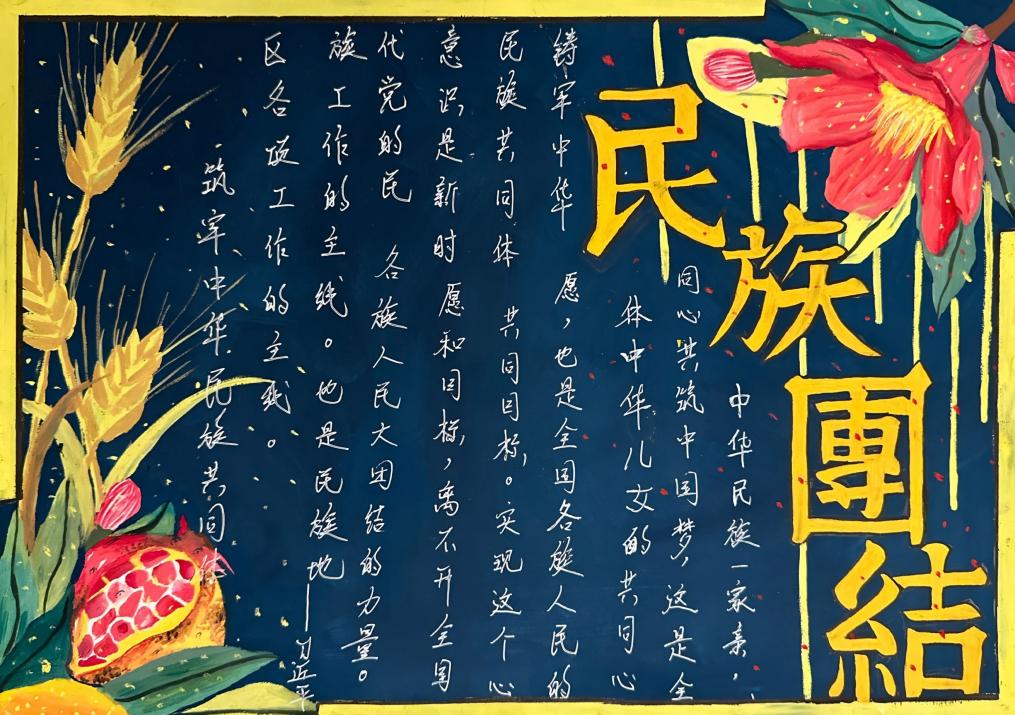 民族團結
中华民族一家亲，
同心共筑中国梦，这是全
体中华儿女的共同心
愿，也是全国各族人民的
共同目标。实现这个心
愿和目标，离不开全国
各族人民大团结的力量。
——习近平
铸牢中华
民族共同体
意识是新时
代党的民
族工作的主线。也是民族地
区各项工作的主线。
筑牢中华民族共同体